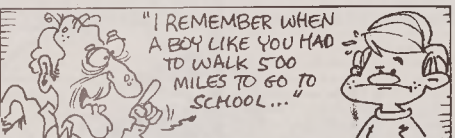 "I REMEMBER WHEN
A BOY LIKE YOU HAD
TO WALK 500
MILES TO GO TO
SCHOOL..."